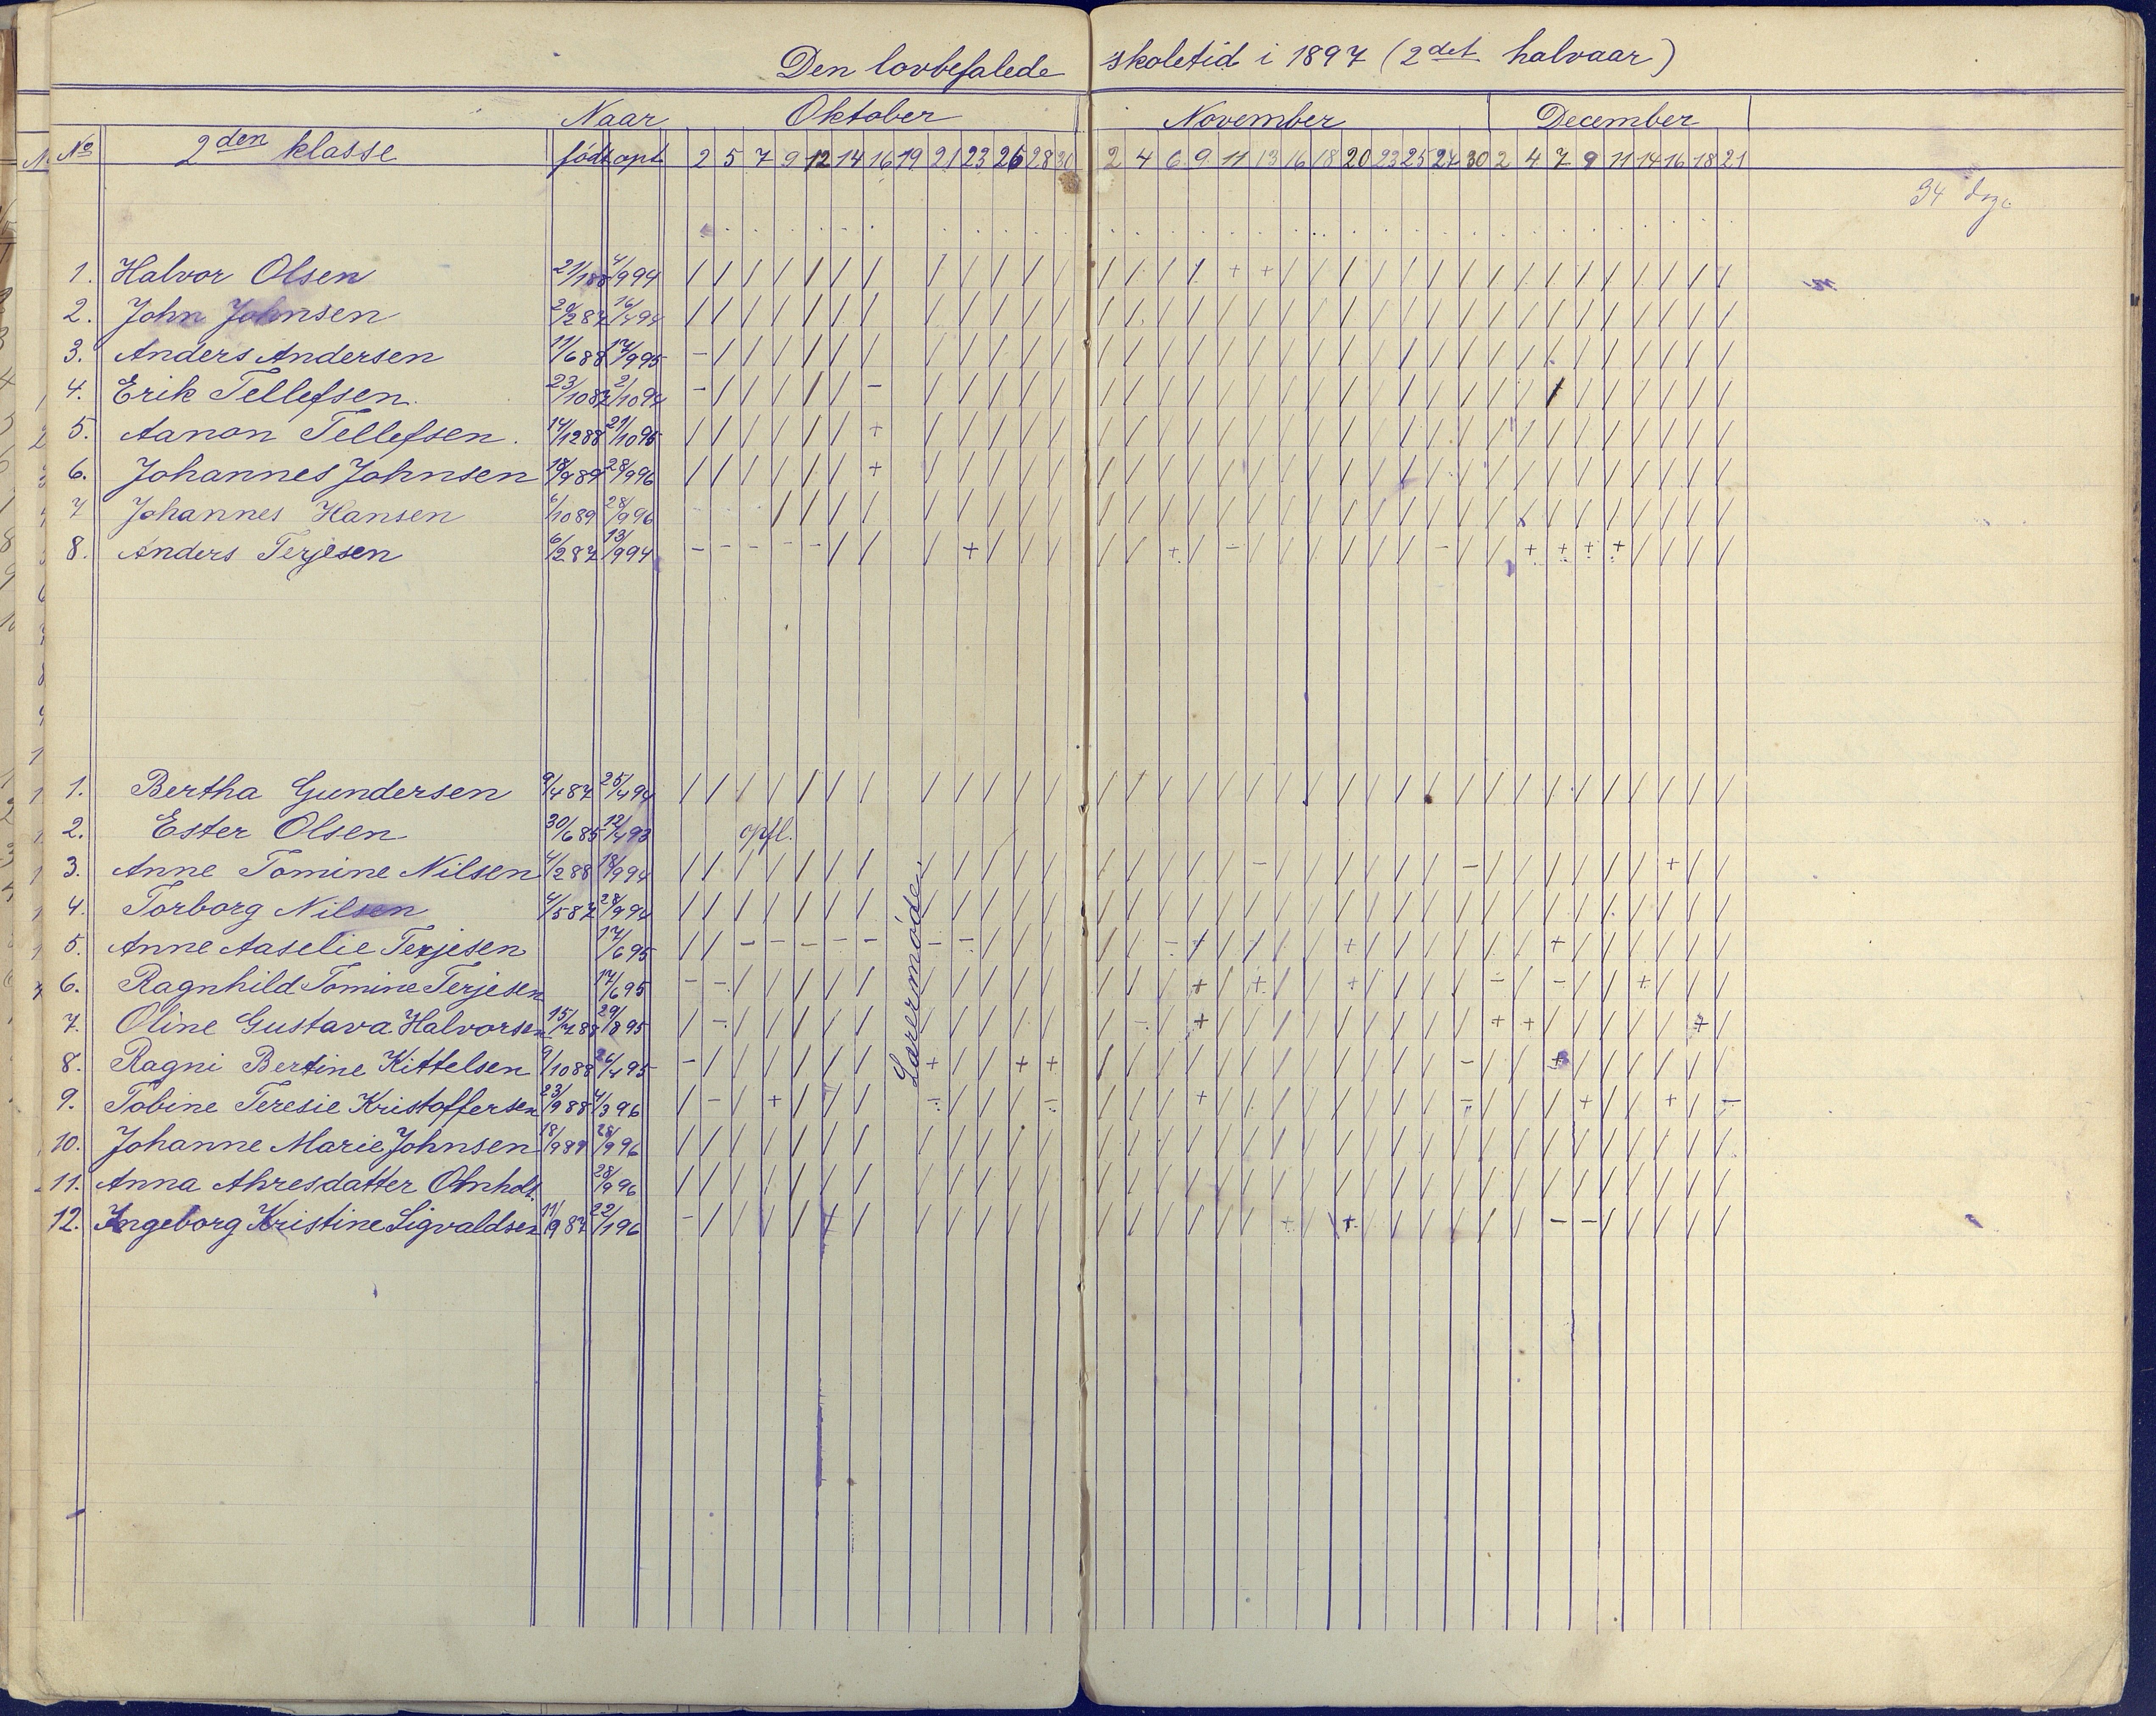 Den lovbefalede skoletid i 1897 (2det halvaar)
Naar Oktober November December
No 2den klasse født opt 2 5 7 9 12 14 16 19 21 23 26 28 30 2 4 6 9 11 13 16 18 20 23 25 27 30 2 4 7 9 11 14 16 18 21
34
1. Halvor Olsen 21/1 88 4/9 94 / / / / / / / / / / / / / / / / + + / / / / / / / / / / / / / / / / /
2. John Johnsen 20/2 87 16/4 94 / / / / / / / / / / / / / / / / / / / / / / / / / / / / / / / / / / /
3. Anders Andersen 11/6 88 17/9 95 – / / / / / / / / / / / / / / / / / / / / / / / / / / / / / / / / / /
4. Erik Tellefsen. 23/10 87 2/10 94 – / / / / / – / / / / / / / / / / / / / / / / / / / / / / / / / / / /
5. Aanon Tellefsen. 14/12 88 21/10 95 / / / / / / + / / / / / / / / / / / / / / / / / / / / / / / / / / / /
6. Johannes Johnsen 18/9 89 28/9 96 / / / / / / + / / / / / / / / / / / / / / / / / / / / / / / / / / / /
7 Johannes Hansen 6/10 89 28/9 96 / / / / / / / / / / / / / / / / / / / / / / / / / / / / / / / /
8. Anders Terjesen 6/2 87 13/9 94 – – – – – / / / + / / / / / + / – / / / / / / – / / + + + + / / / /
1. Bertha Gundersen 9/4 87 25/4 94 / / / / / / / / / / / / / / / / / / / / / / / / / / / / / / / / / / /
2. Ester Olsen 30/6 85 12/4 93 opfl.
3. Anne Tomine Nilsen 4/2 88 18/9 94 / / / / / / / / / / / / / / / / / / – / / / / / / – / / / / / / + / /
4. Torborg Nilsen 4/5 87 28/9 94 / / / / / / / / / / / / / / / / / / / / / / / / / / / / / / / / / / /
5. Anne Aaselie Terjesen 17/6 95 / / – – – – – – – / / / / / – + / / / / + / / / / / / / + / / / / / /
6. Ragnhild Tomine Terjesen 17/6 95 – – / / / / / / / / / / / / / + / + / / + / / / / – / – / / + / / /
7. Oline Gustava Halvorsen 15/7 88 29/8 95 / – / / / / / / / / / / / – / + / / / / / / / / / / + + / / / / / + /
8. Ragni Bertine Kittelsen 9/10 88 26/4 95 – / / / / / / + / / + + / / / / / / / / / / / / – / / + / / / / / /
9. Tobine Teresie Kristoffersen 23/9 88 4/3 96 / – / + / / / – / / / – / / / + / / / / / / / / – / / / + / / + / –
10. Johanne Marie Johnsen 18/9 89 28/9 96 / / / / / / / / / / / / / / / / / / / / / / / / / / / / / / / / / / /
11. Anna Ahresdatter Omholt. 28/9 96 / / / / / / / / / / / / / / / / / / / / / / / / / / / / / / / / / / /
12. Ingeborg Kristine Sigvaldsen 11/9 87 22/1 96 – / / / / / / / / / / / / / / / / / + / + / / / / / / – – / / / / /
Lærermøde.